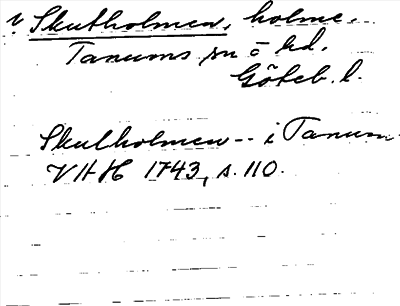 ? Skutholmen, holme,
Tanums sn o hd,
Göteb. l.
Skutholmen -- i Tanum
VHH 1743, s. 110.